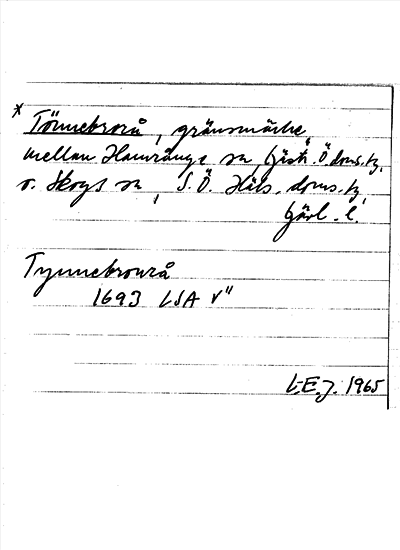 * Tönnebrorå, gränsmärke
mellan Hamrånge sn, Gästr. Ö. doms. tg,
o. Skogs sn, S. Ö. Häls. doms. tg,
Gävl. l.
Tynnebrourå
1693 LSA V"
L.E.J. 1965